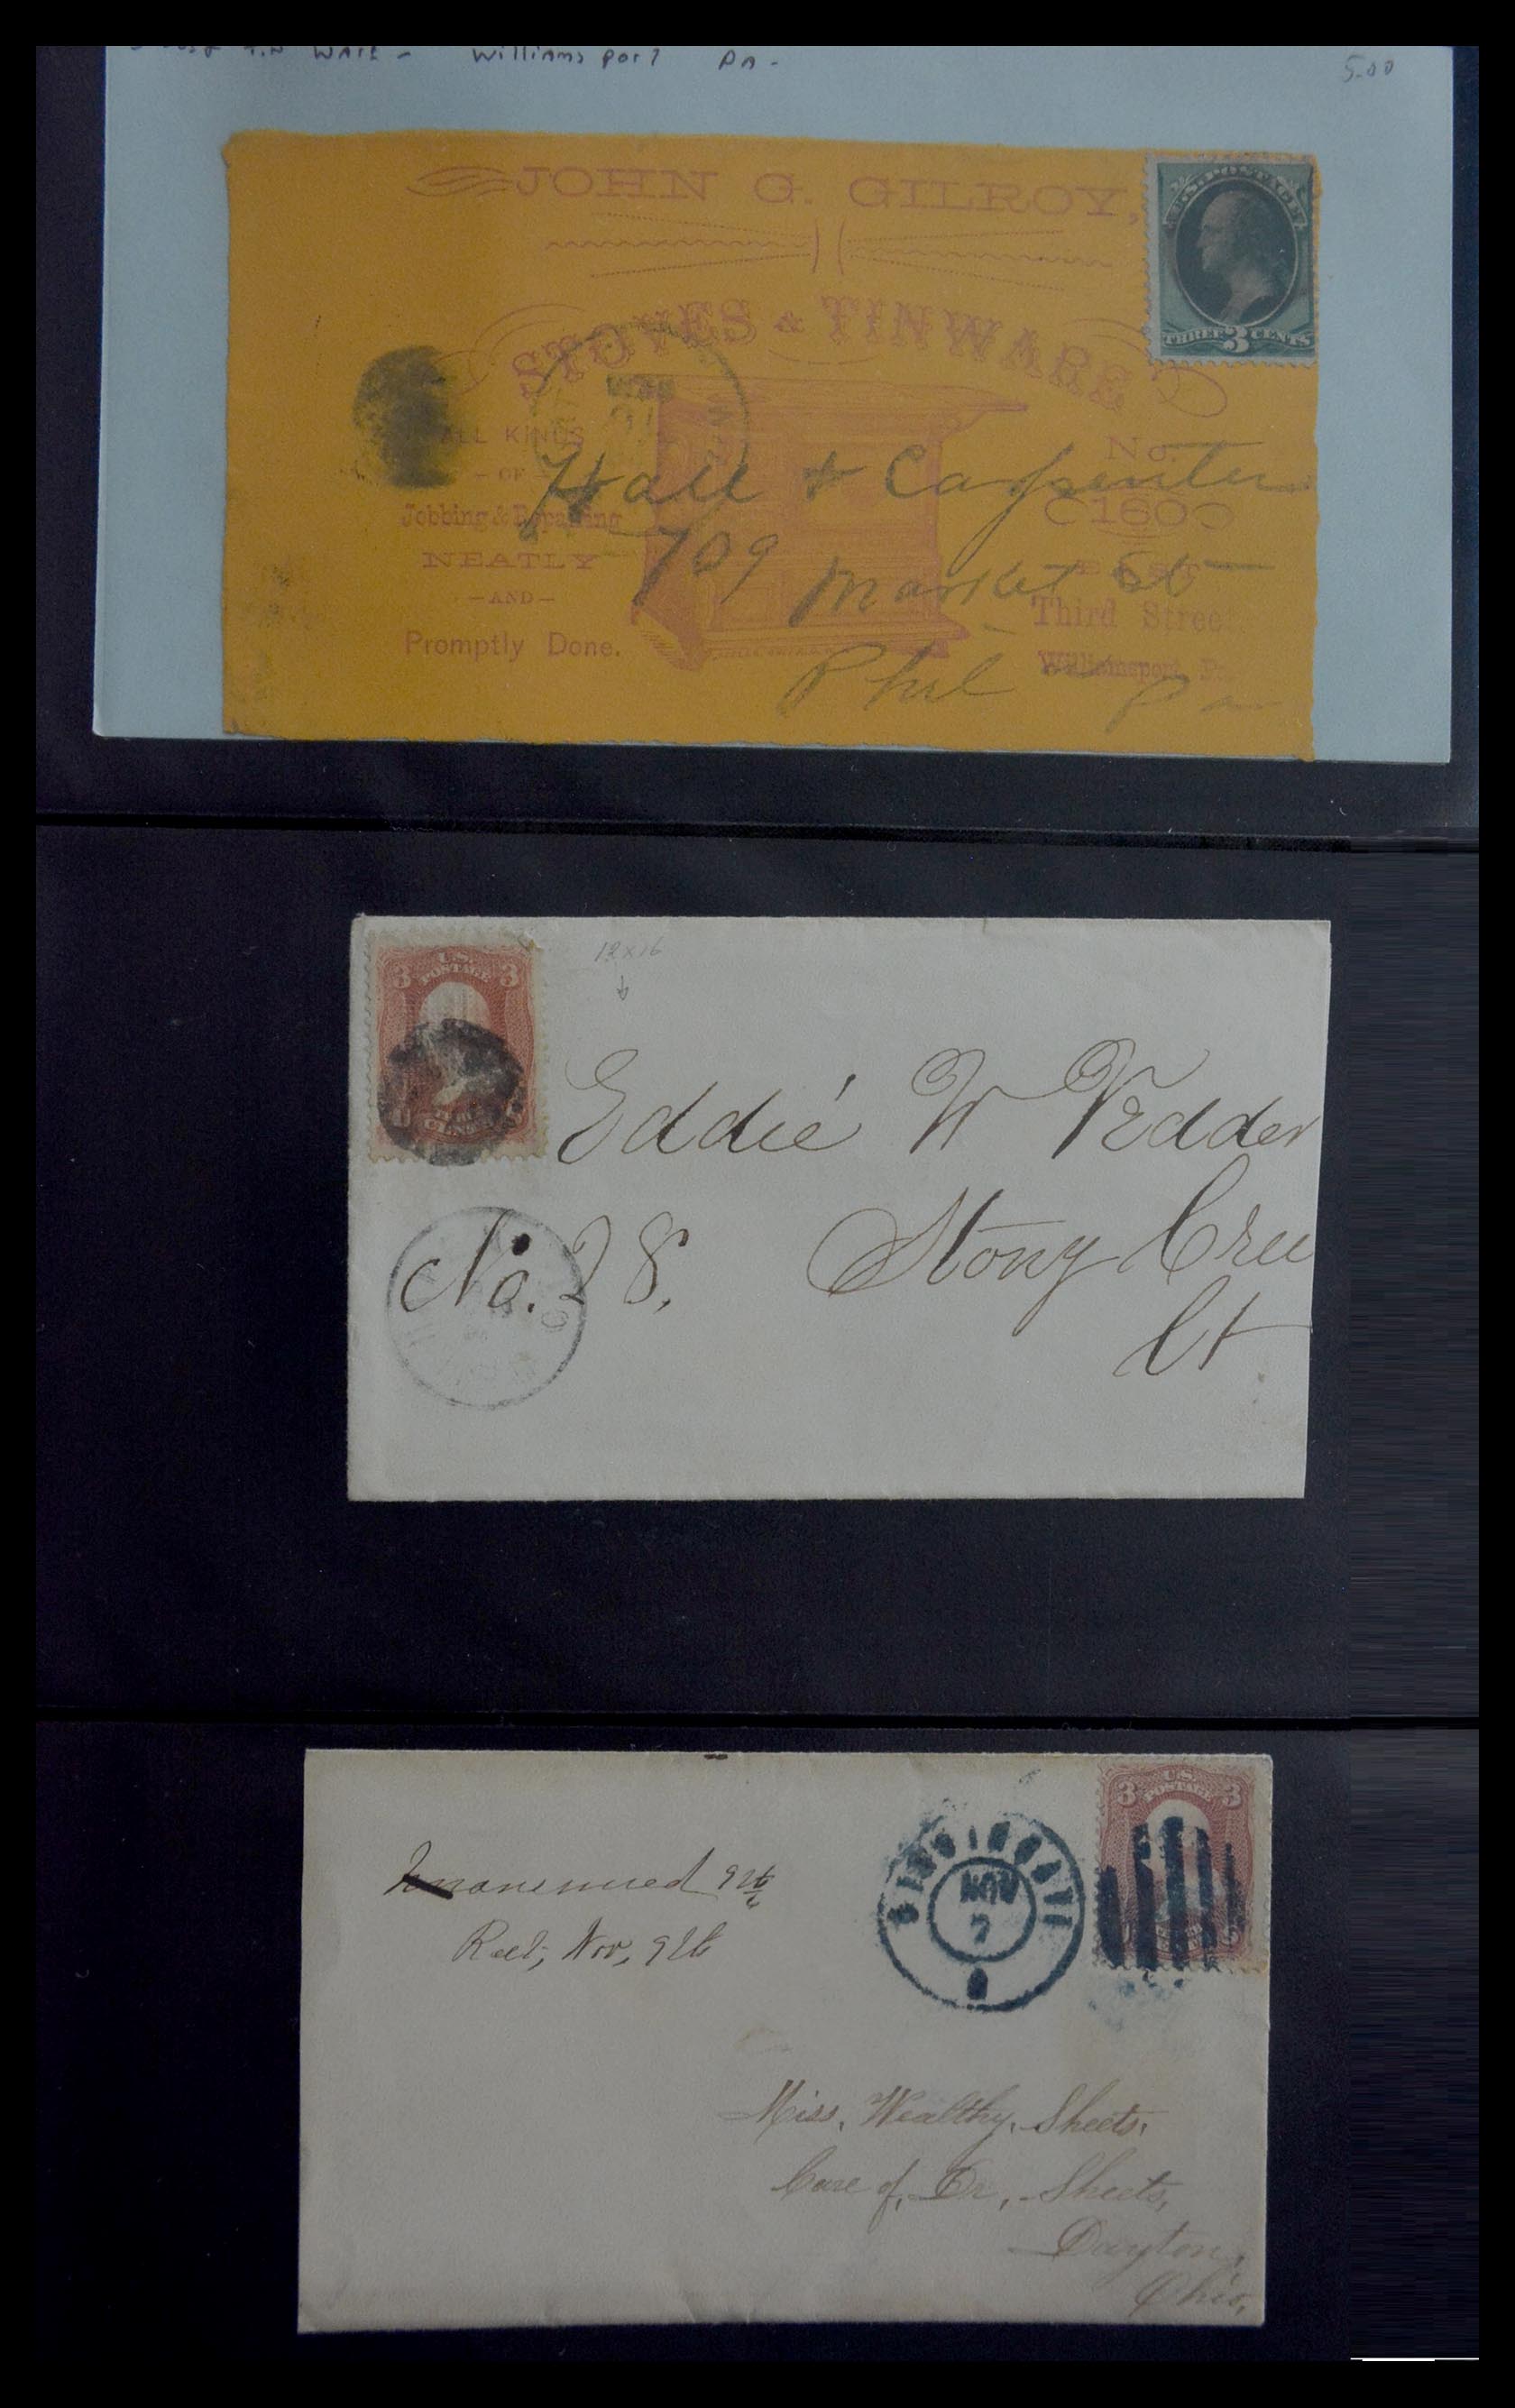 Williamsport PA -
5.00
JOHN G. GILROY,
U.S. POSTAGE
THREE 3 CENTS
STOVES & TINWARE
ALL KINDS
- OF -
Jobbing & Repairing
NEATLY
- AND -
Promptly Done.
No.
160
EAST
Third Street,
Williamsport, Pa.
Hall & Carpenter
709 Market St
Phil Pa
U.S. POSTAGE
3 3
CENTS
12x16
Eddie W Vedder
No. 28. Stony Cree
Ct
U.S. POSTAGE
3 3
CINCINNATI
NOV
7
O
answered 9th
Recd, Nov, 9th
Miss, Wealthy, Sheets,
Care of, Dr, Sheets,
Dayton,
Ohio,